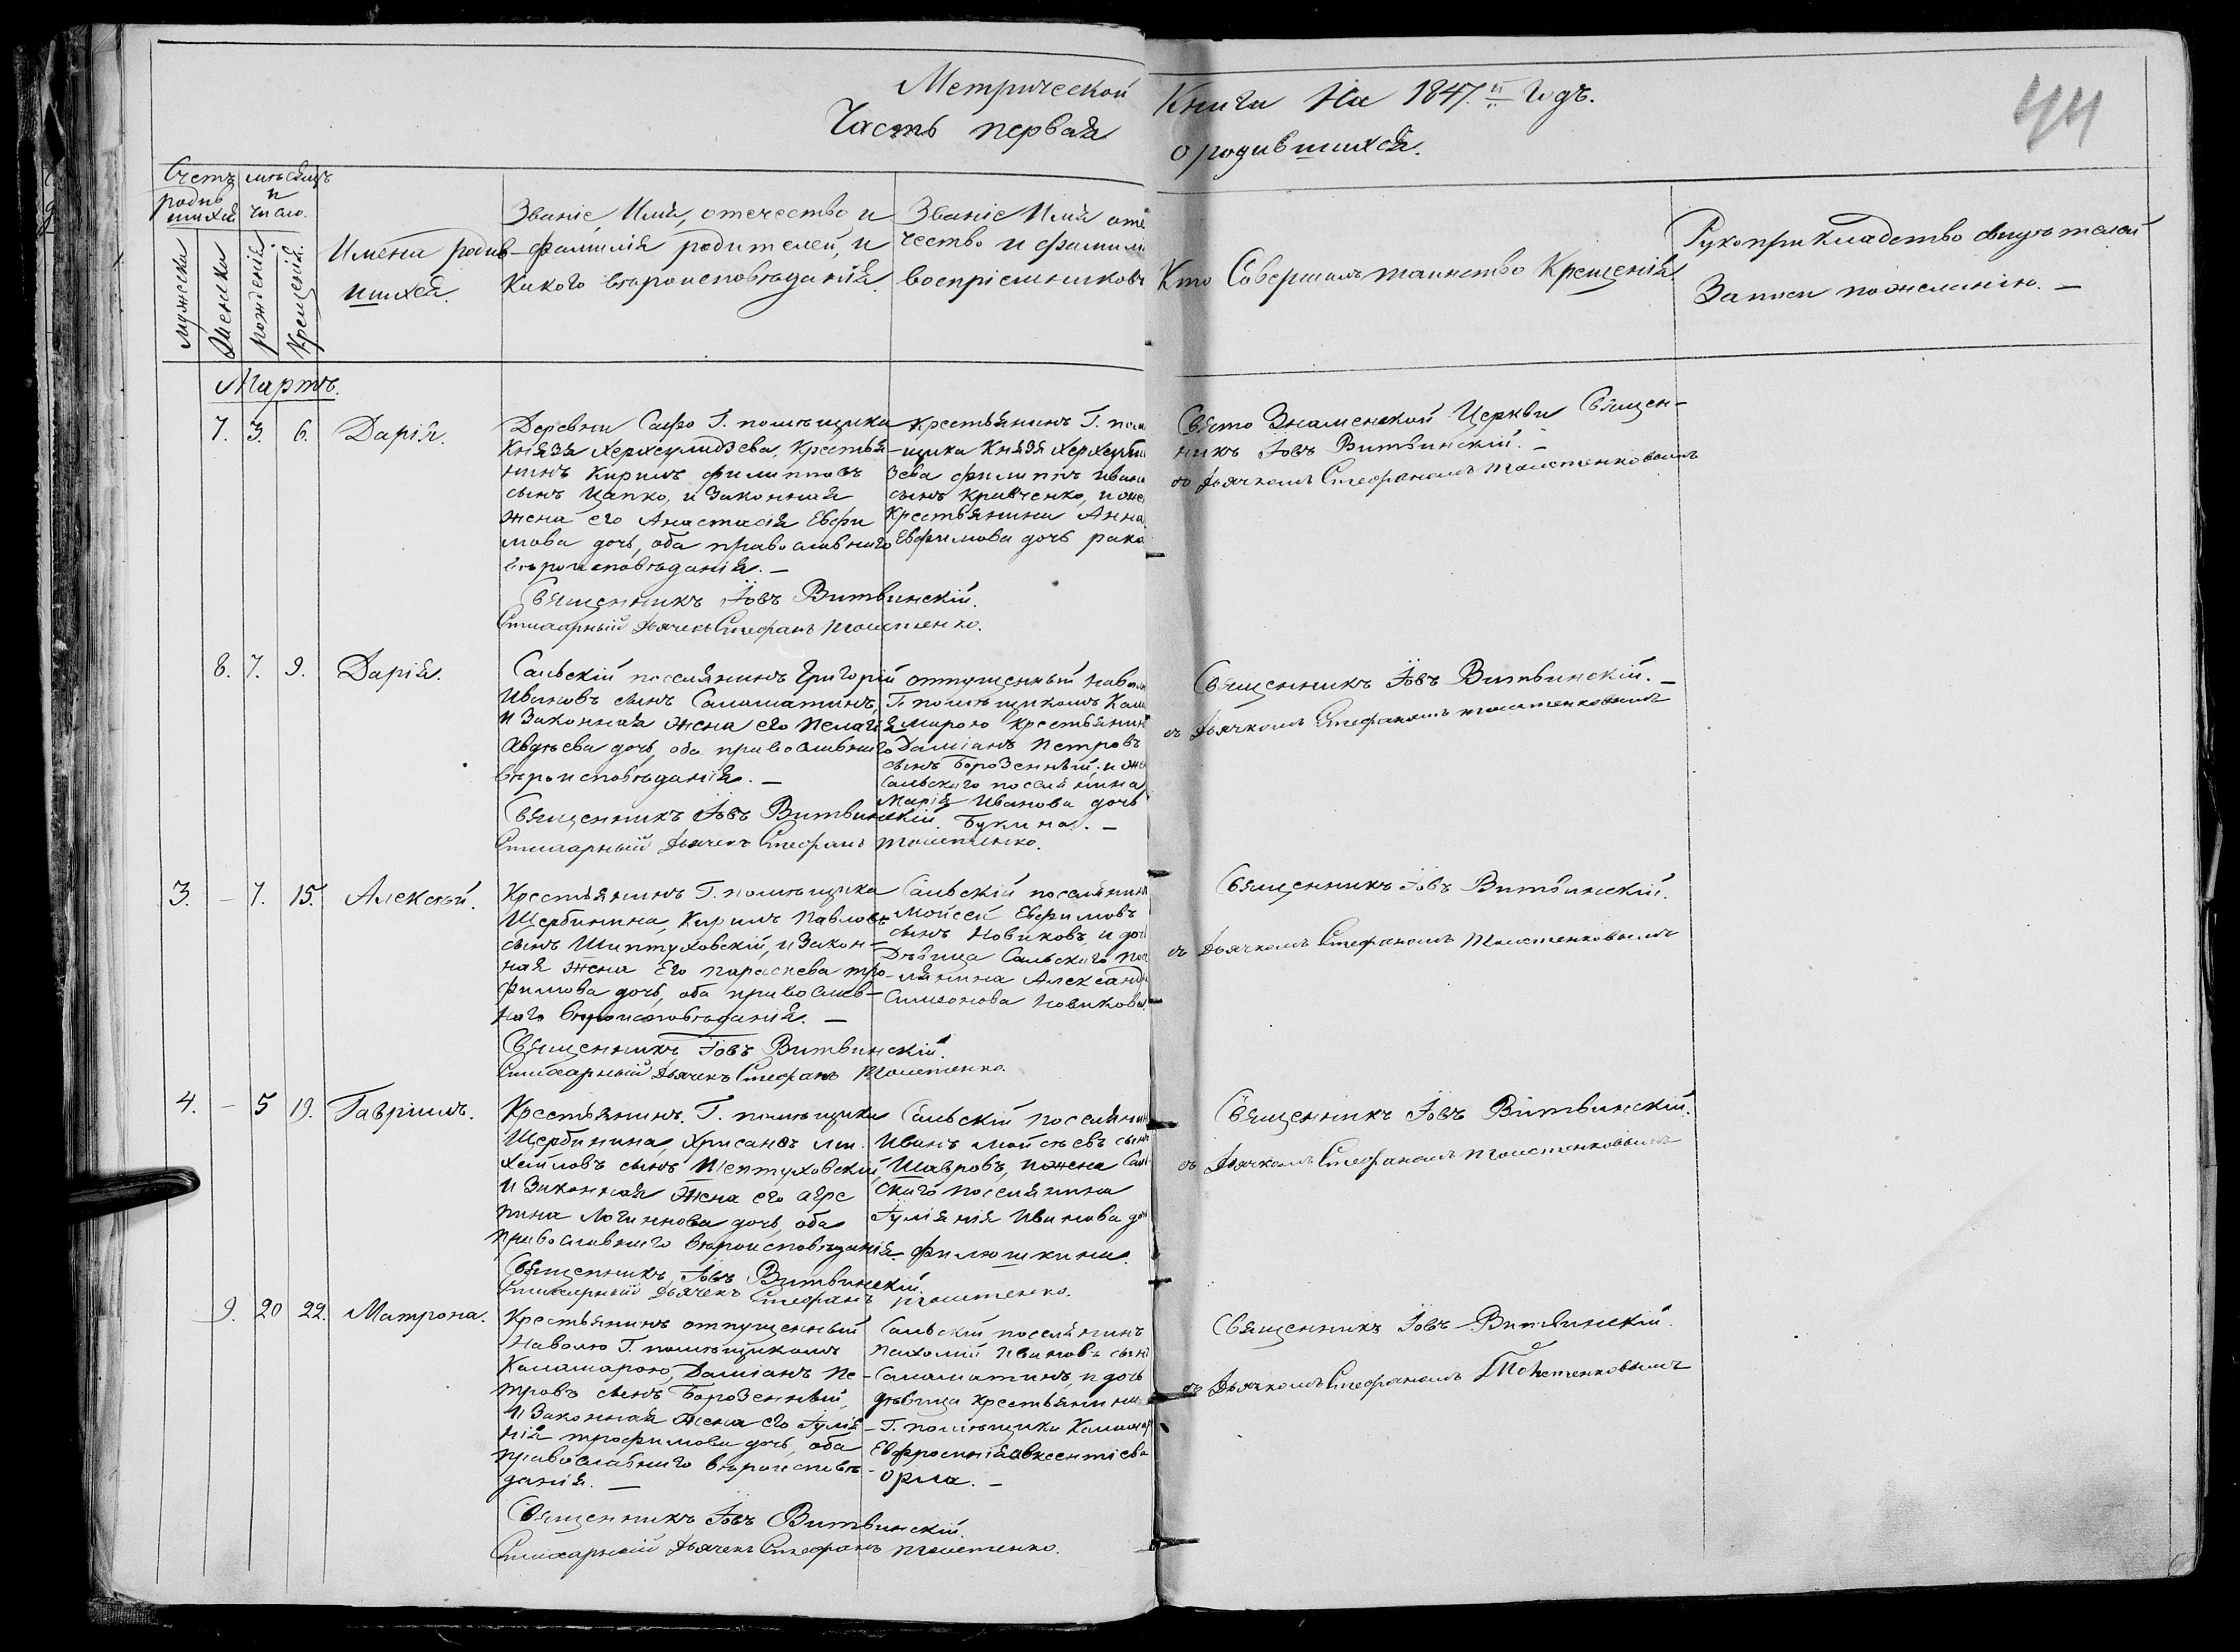 Метрической Книги На 1847.й Годъ.
Часть первая о родившихся.
44
Счетъ родив шихся
мѣсяцъ и число.
мужеска
Женска
рожденія
Крещенія.
Имена родив-
шихся.
Званіе, Имя, отечество и
фамилія родителей, и
какого вѣроисповѣданія.
Званіе Имя оте
чество и фамили
воспріемниковъ
Кто Совершалъ таинство Крещенія.
Рукоприкладство свидѣтелей
Записи по желанію. —
Мартъ.
7. 3. 6. Дарія.
Деревни Г. помѣщика
Князя Херхеулидзева, Крестья-
нинъ Кирилъ филипповъ
сынъ Цапко, и Законная
жена его Анастасія Евфи
мова дочь, оба православнаго
вѣроисповѣданія. —
Священникъ Іовъ Витвинскій.
Стихарный Дьячекъ Стефанъ
Крестьянинъ Г. пом
щика Князя Херхеули
зева филипъ ивано
сынъ Кравченко, и же
Крестьянина Анна
Евфимова дочь
Свято Знаменской Церкви Священ-
никъ Іовъ Витвинскій. —
съ Дьячкомъ Стефаномъ
8. 7. 9. Дарія.
Сальскій поселянинъ Григорій
Ивановъ сынъ Саламатинъ,
и Законная жена его Пелагія
Авдѣева дочь, оба православнаго
вѣроисповѣданія. —
Священникъ Іовъ Витвинскій.
Стихарный Дьячекъ Стефанъ
отпущенный на вол
Г. помѣщикомъ Кала
марою крестьянин
Даміанъ Петровъ
сынъ Борозенный, и же
Сальскаго поселянина
Марія Иванова дочь
Букина. —
Священникъ Іовъ Витвинскій. —
съ Дьячкомъ Стефаномъ
3. — 7. 15. Алексѣй.
Крестьянинъ Г. помѣщика
Щербинина, Кирилъ Павловъ
сынъ Шиптуховскій, и Закон-
ная жена Его Параскева тро-
фимова дочь, оба православ-
наго вѣроисповѣданія. —
Священникъ Іовъ Витвинскій.
Стихарный Дьячекъ Стефанъ
Сальскій поселянин
Мойсей Евфимовъ
сынъ Новиковъ, и доч
Дѣвица Сальскаго пос
лянина Александр
Симеонова Новикова.
Священникъ Іовъ Витвинскій.
съ Дьячкомъ Стефаномъ
4. — 5 19. Гавріилъ.
Крестьянинъ Г. помѣщика
Щербинина, Хрисанѳъ ми-
хайловъ сынъ Шептуховскій,
и Законная жена его агре
пина Логинова дочь, оба
православнаго вѣроисповѣданія.
Священникъ Іовъ Витвинскій.
Стихарный Дьячекъ Стефанъ
Сальскій поселянин
Иванъ мойсѣевъ сынъ
Шавровъ, и жена Саль
скаго поселянина
Іуліянія Иванова доч
филюшкина.
Священникъ Іовъ Витвинскій.
съ Дьячкомъ Стефаномъ
9. 20 22. Матрона.
Крестьянинъ отпущенный
на волю Г. помѣщикомъ
Каламарою, Даміанъ Пе-
тровъ сынъ Борозенный,
и Законная жена его Іулія
нія трофимова дочь, оба
православнаго вѣроисповѣ-
данія. —
Священникъ Іовъ Витвинскій.
Стихарный Дьячекъ Стефанъ
Сальскій поселянинъ
Пахомій Ивановъ сынъ
Саламатинъ, и дочь
дѣвица крестьянина
Г. помѣщика Каламар
Евфросинія авксентіева
орла. —
Священникъ Іовъ Витвинскій.
съ Дьячкомъ Стефаномъ